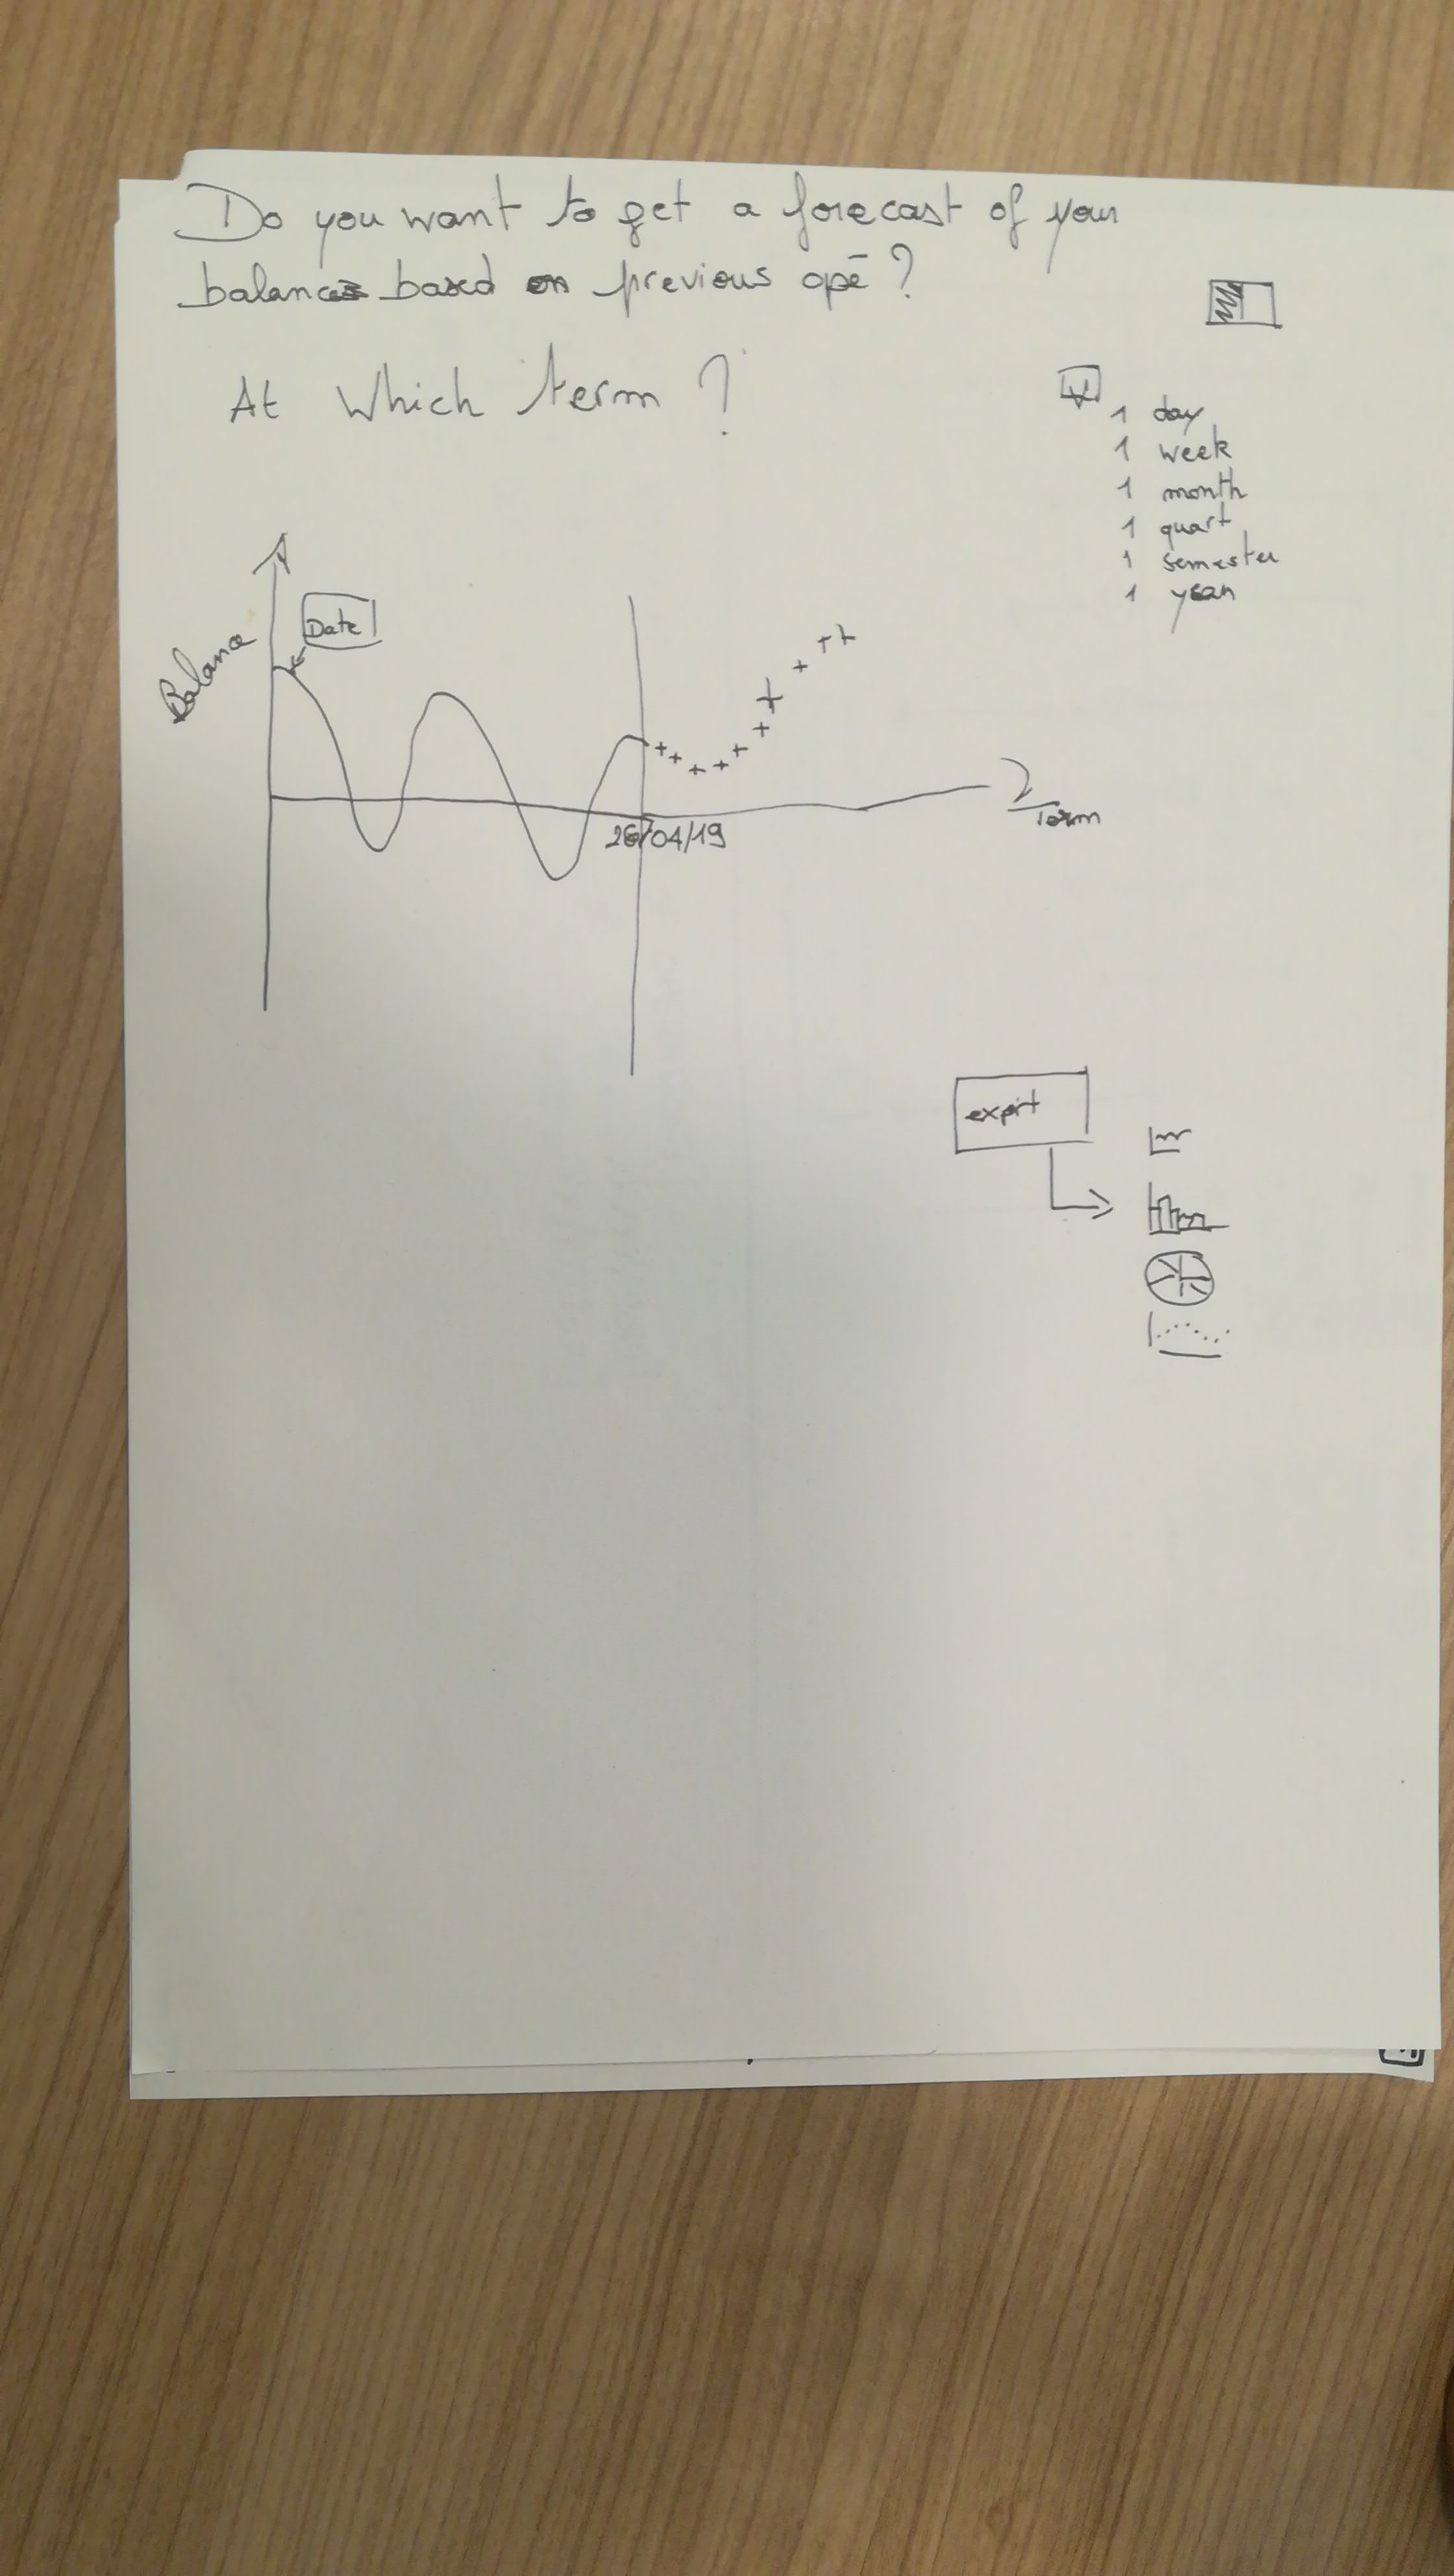 Do you want to get a forecast of your
balances based on previous opē ?
At Which term ?
1 day
1 week
1 month
1 quart
1 semester
1 year
Date
Balance
26/04/19
Term
export